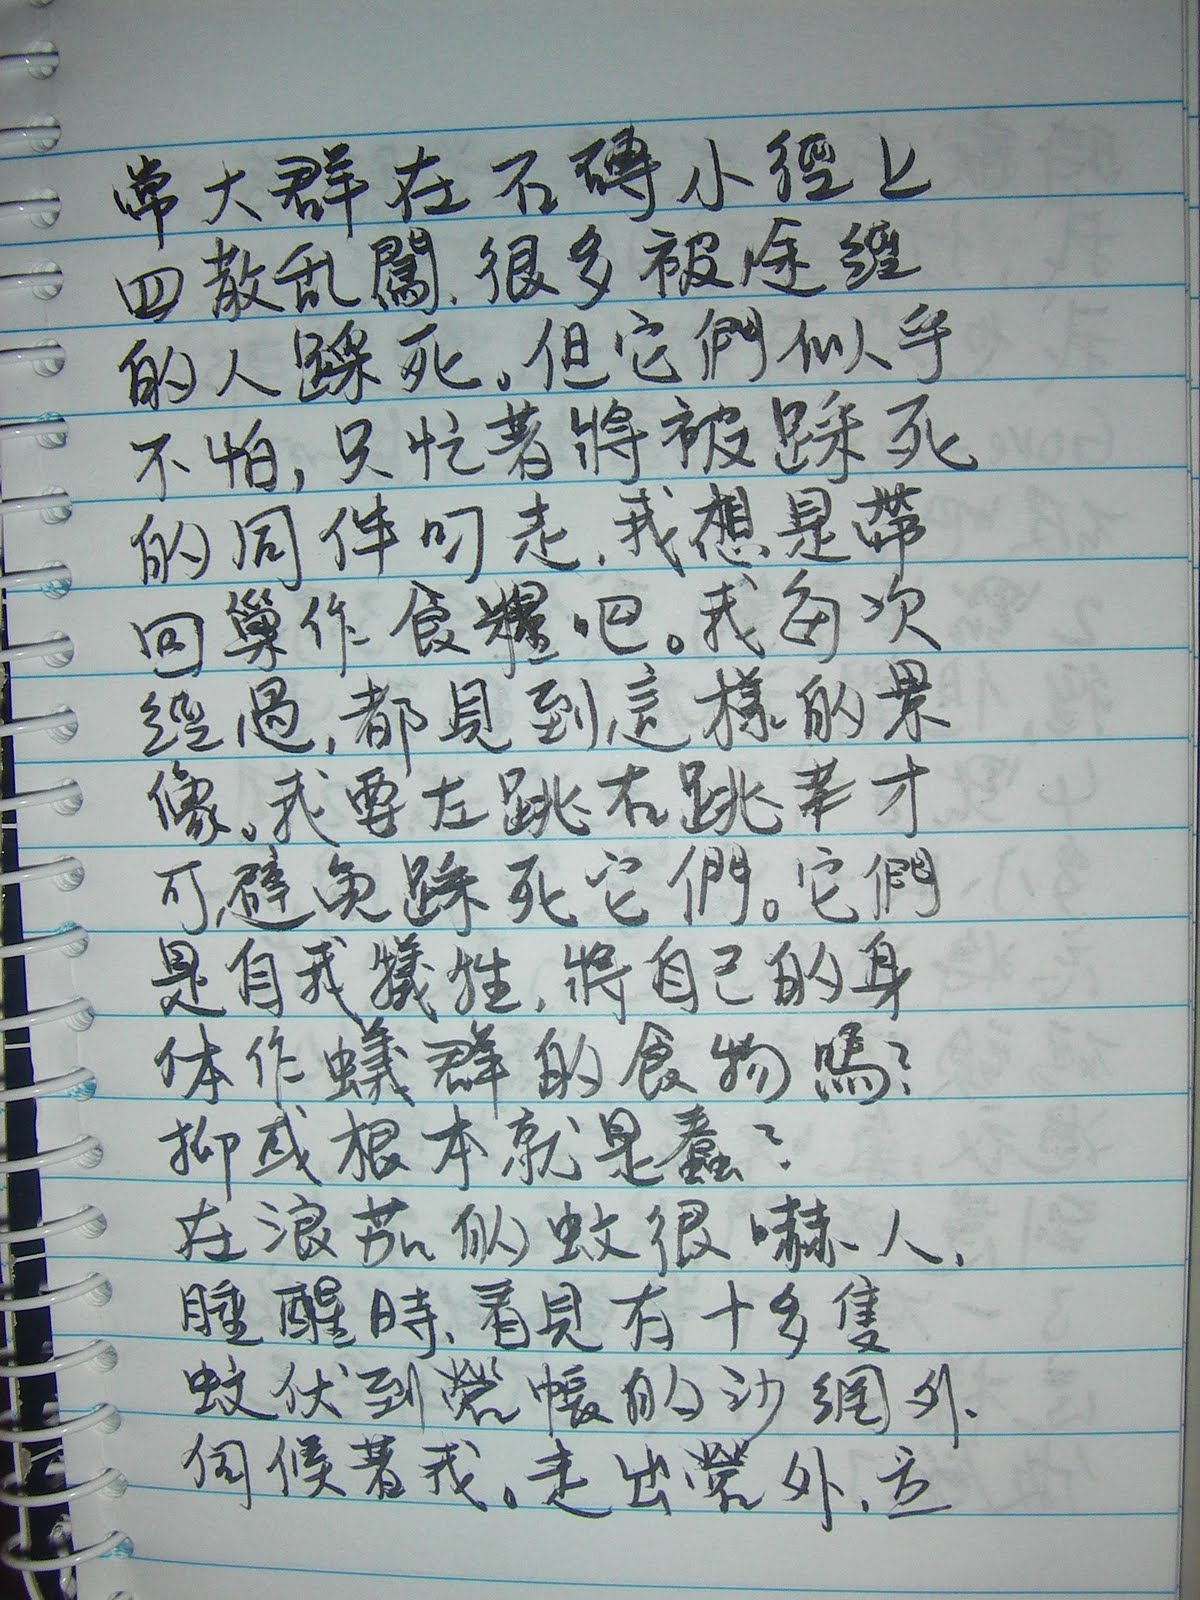 常大群在石磚小徑上
四散乱闖、很多被途經
的人踩死。但它們似乎
不怕，只忙著將被踩死
的同伴叼走、我想是帶
回巢作食糧吧。我每次
經過，都見到這樣的景
像。我要左跳右跳才
可避免踩死它們。它們
是自我犧牲，將自己的身
体作蟻群的食物嗎？
抑或根本就是蠢？
在浪茄的蚊很嚇人、
睡醒時、看見有十多隻
蚊伏到營帳的沙網外、
伺候著我。走出營外、立